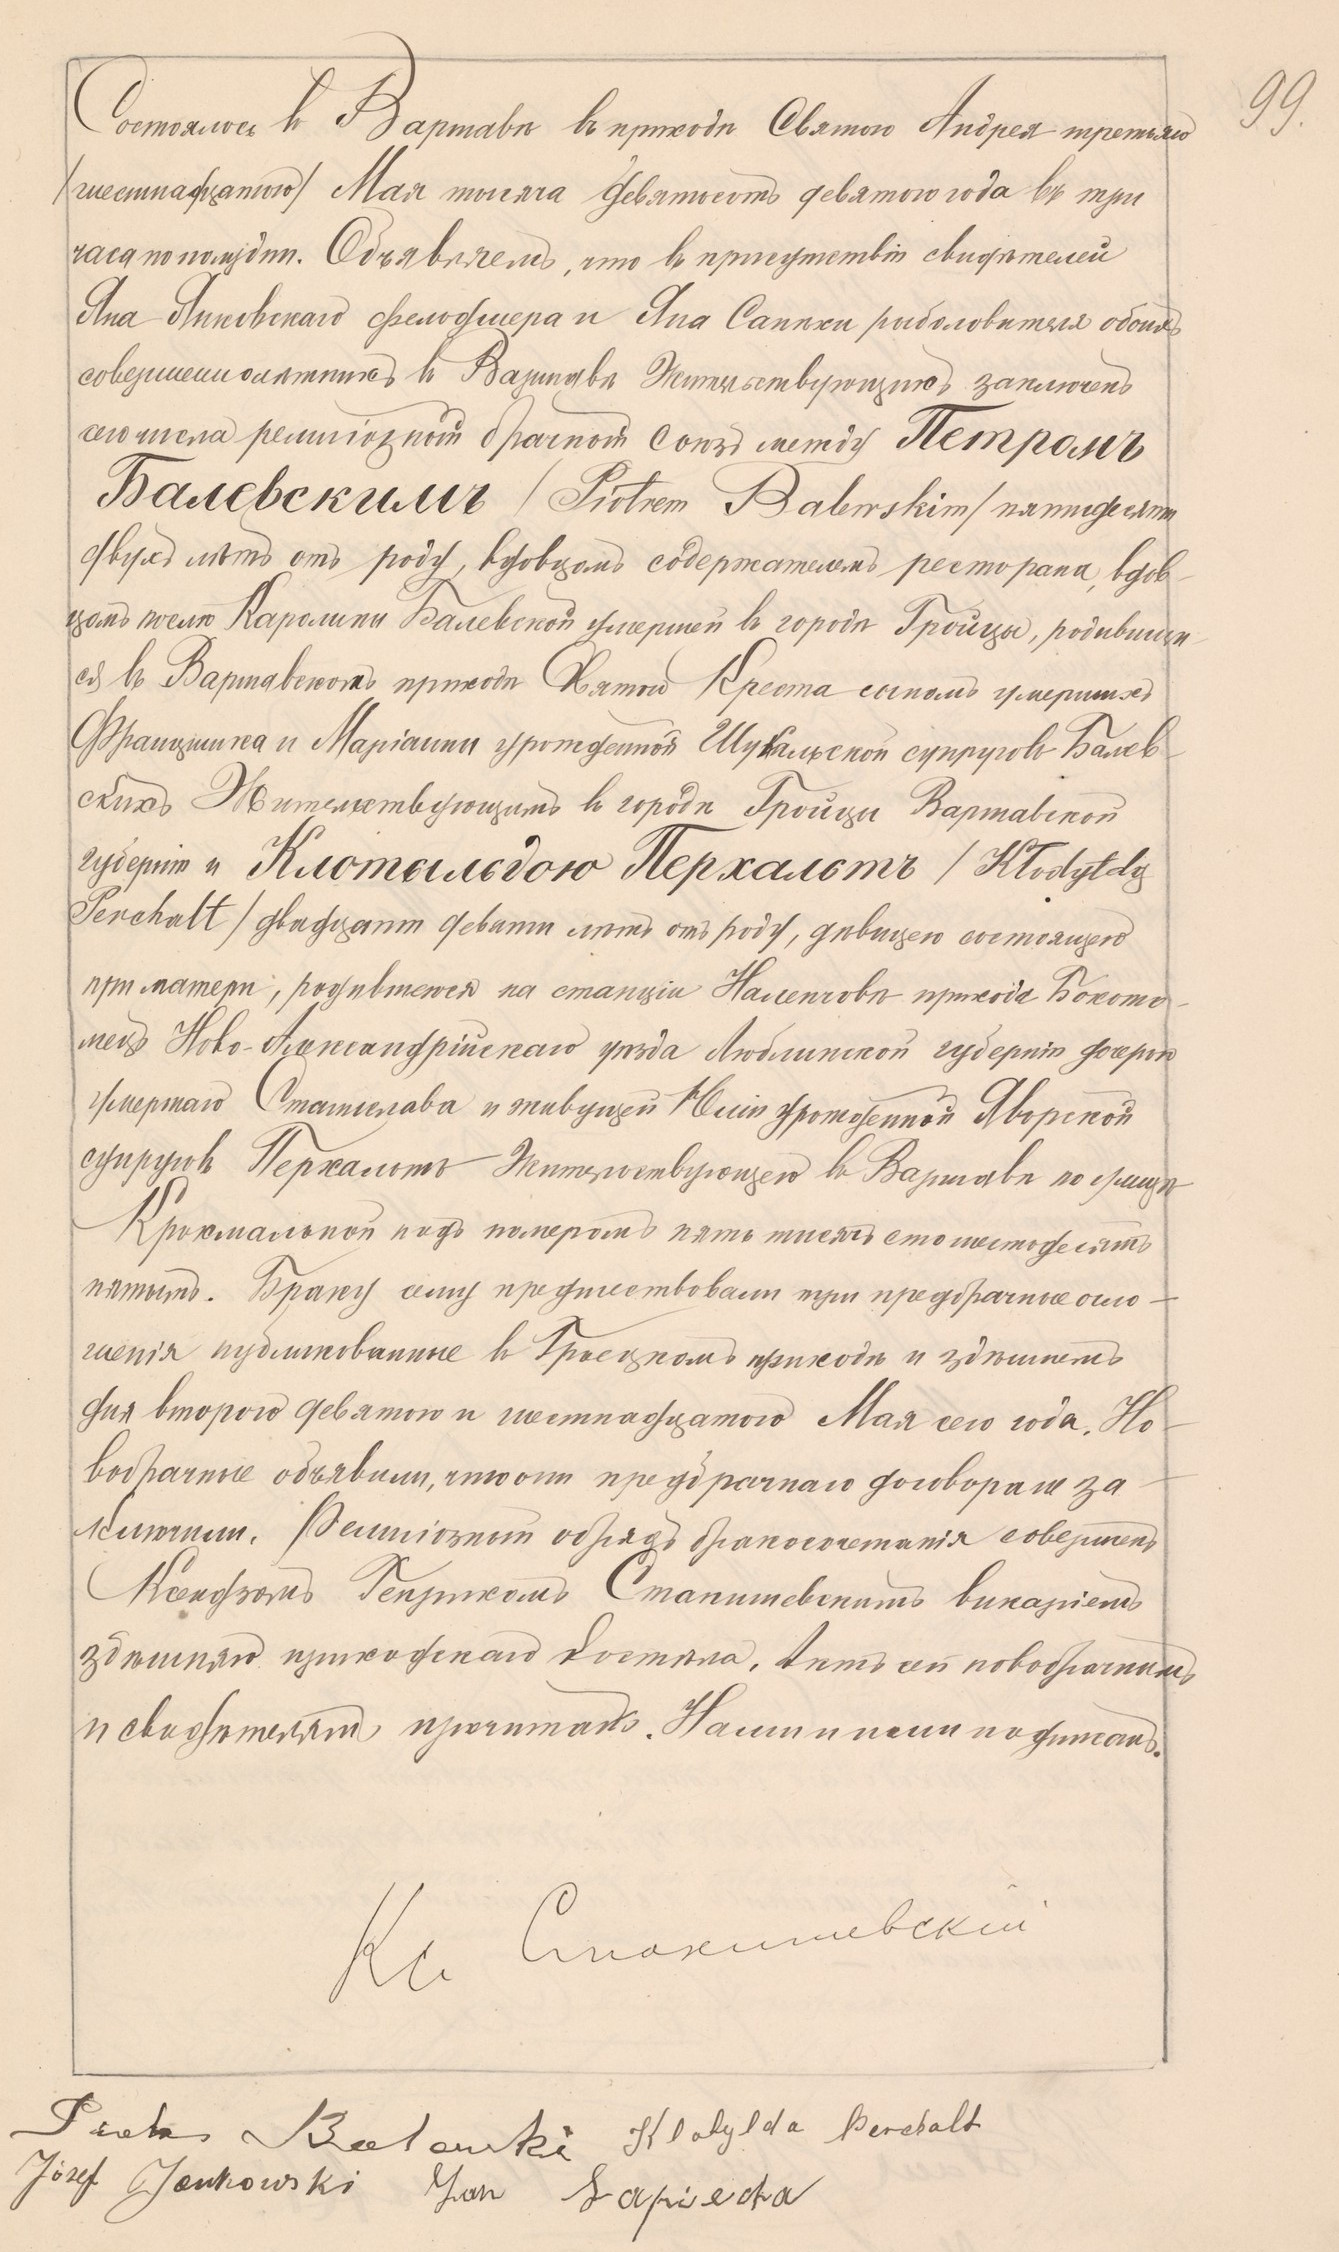 99.
Состоялось въ Варшавѣ въ приходѣ Святого Андрея третьяго
/шестнадцатого/ Мая тысяча девятьсотъ девятого года въ три
часа по полудни. Объявляемъ, что въ присутствіи свидѣтелей
Яна Янковскаго фельдшера и Яна Сапѣхи рыболовителя обоихъ
совершеннолѣтнихъ въ Варшавѣ Жительствующихъ заключенъ
сего числа религіозный брачный союзъ между Петромъ
Балевскимъ / Piotrem Balewskim / пятидесяти
двухъ лѣтъ отъ роду, вдовцомъ содержателемъ ресторана, вдов-
цомъ послѣ Каролины Балевской умершей въ городѣ Гройцы, родившим-
ся въ Варшавскомъ приходѣ Святого Креста сыномъ умершихъ
Францишка и Маріанны урожденной супруговъ Балев-
скихъ Жительствующимъ въ городѣ Гройцы Варшавской
губерніи и Клотыльдою Перхальтъ / Klotyldą
Perchalt / двадцати девяти лѣтъ отъ роду, дѣвицею состоящею
при матери, родившеюся на станціи Наленчовъ прихода
Ново-Александрійскаго уѣзда Люблинской губерніи дочерью
умершаго Станислава и живущей Юліи урожденной Яворской
супруговъ Перхальтъ Жительствующею въ Варшавѣ по улицѣ
Крохмальной подъ номеромъ пять тысячъ сто шестьдесятъ
пятымъ. Браку сему предшествовали три предбрачные огло-
шенія публикованные въ Гроецкомъ приходѣ и здѣшнемъ
дня второго девятого и шестнадцатого Мая сего года. Но-
вобрачные объявили, что они предбрачнаго договора не за-
ключили. Религіозный обрядъ бракосочетанія совершенъ
Ксендзомъ Генрикомъ Станишевскимъ викаріемъ
здѣшняго приходскаго костела. Актъ сей новобрачнымъ
и свидѣтелямъ прочитанъ. Нами и ими подписанъ.
Кс Станишевскій
Piotr Balewski Klotylda Perchalt
Józef Jankowski Jan Sapiecha